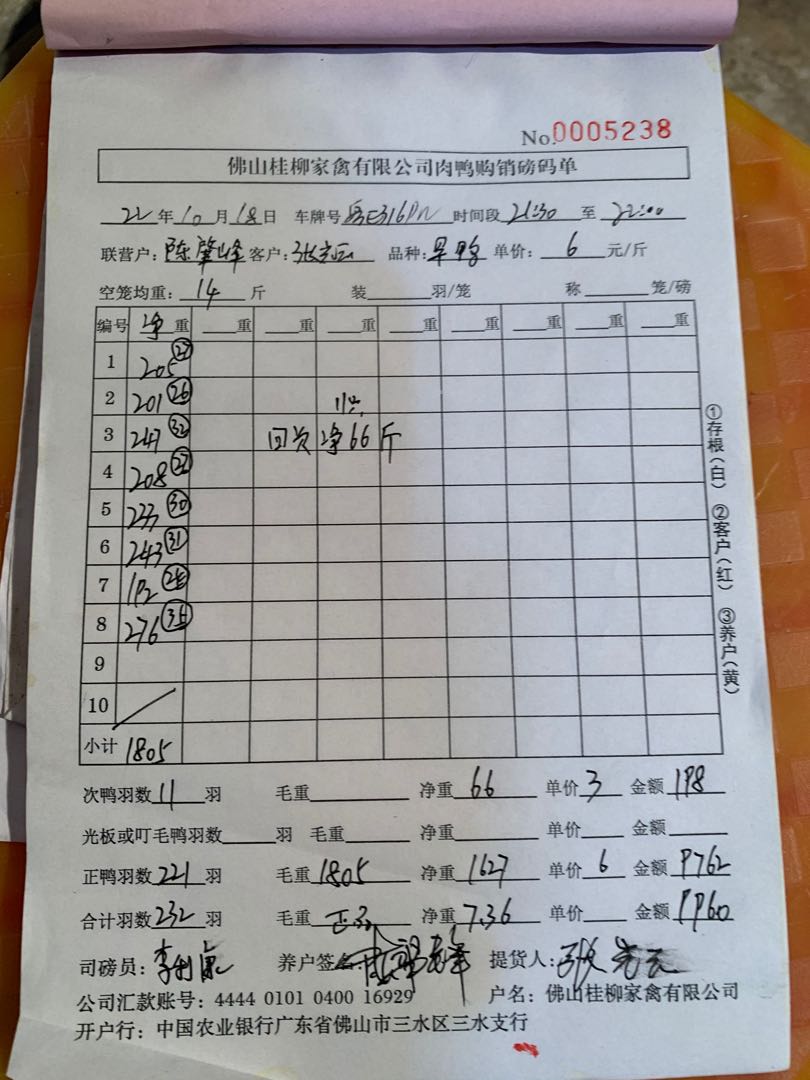 No.0005238
佛山桂柳家禽有限公司肉鸭购销磅码单
22年10月18日 车牌号 时间段21:30至22:00
联营户:陈肇峰 客户:张光云 品种: 单价:6元/斤
空笼均重:14斤 装 羽/笼 称 笼/磅
编号 净重 重 重 重 重 重 重 重 重
1 205 27
2 201 26 11只
3 247 32 回次净66斤
4 208
5 233 30
6 243 31
7 192
8 276
9
10
小计 1805
次鸭羽数11羽 毛重 净重66 单价3 金额198
光板或叮毛鸭羽数 羽 毛重 净重 单价 金额
正鸭羽数221羽 毛重1805 净重1627 单价6 金额9762
合计羽数232羽 毛重 净重7.36 单价 金额9960
司磅员: 养户签名 提货人:张光云
公司汇款账号:4444 0101 0400 16929 户名:佛山桂柳家禽有限公司
开户行:中国农业银行广东省佛山市三水区三水支行
①存根(白) ②客户(红) ③养户(黄)